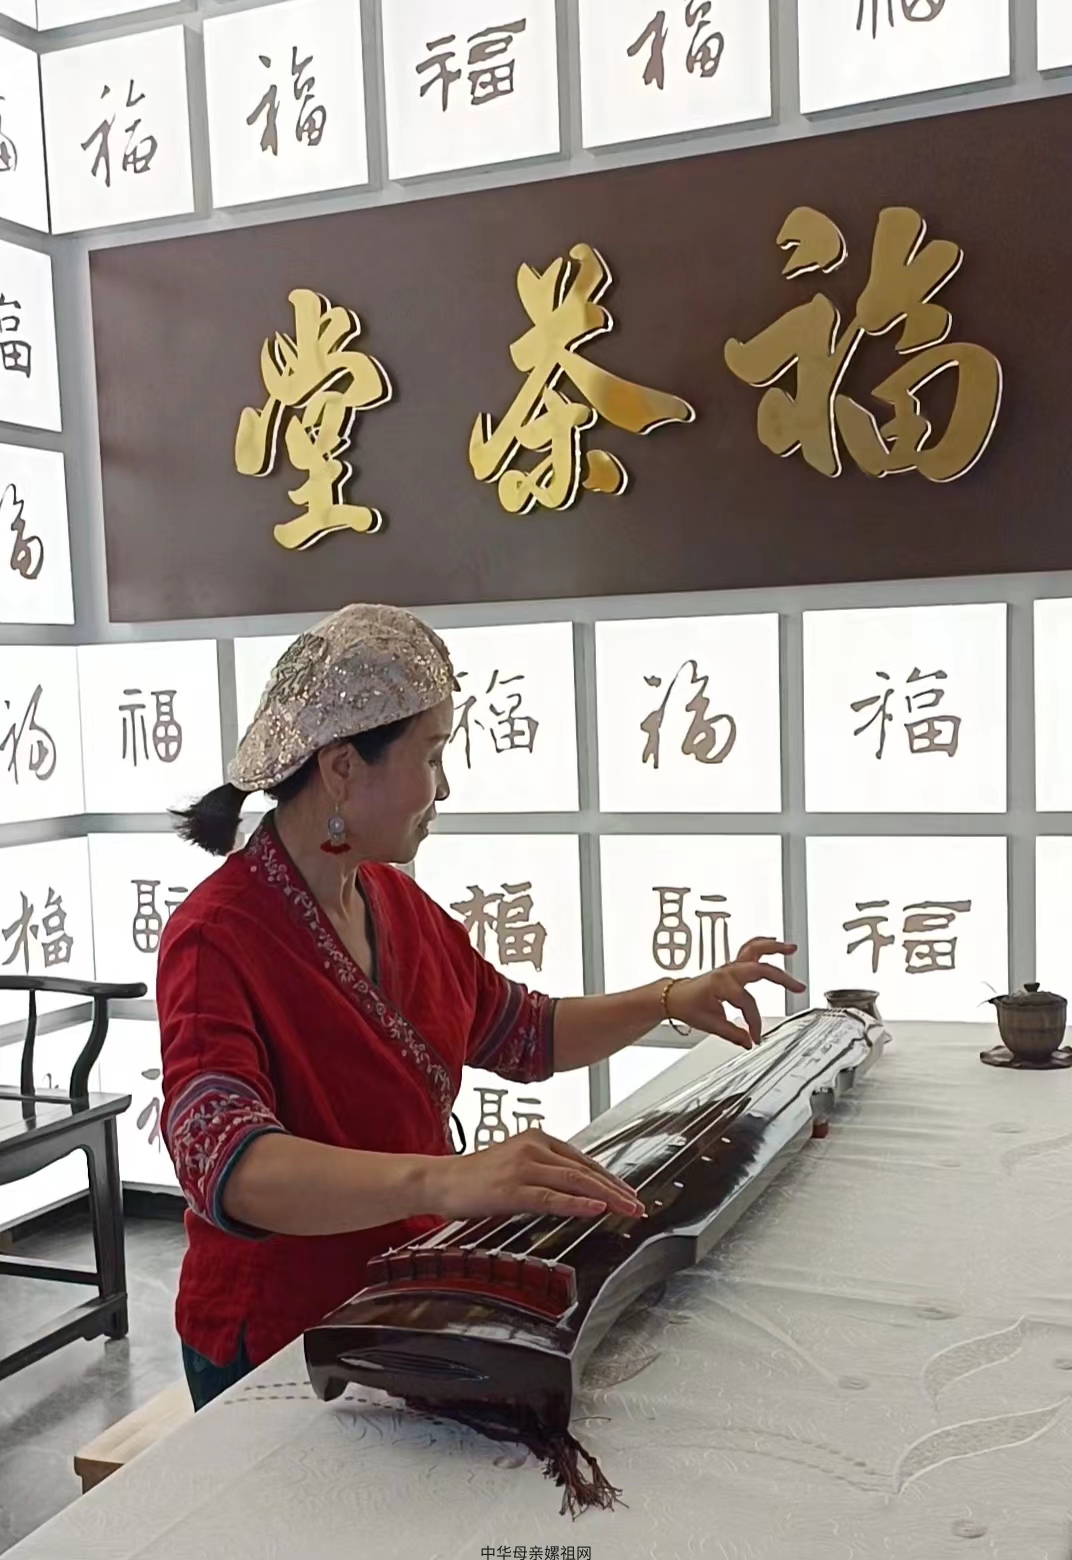 福 福 福 福 福
福茶堂
福
福
福 福 福 福 福
福 福 福 福 福
福
中华母亲嫘祖网